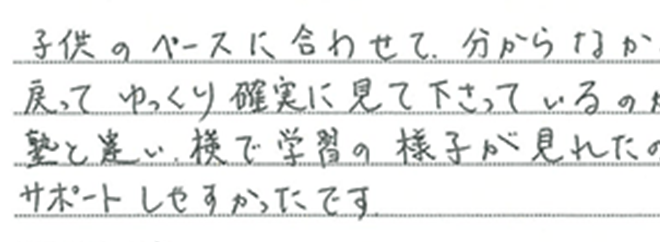 子供のペースに合わせて、分からなか
戻ってゆっくり確実に見て下さっているのが
塾と違い、横で学習の様子が見れたの
サポートしやすかったです。